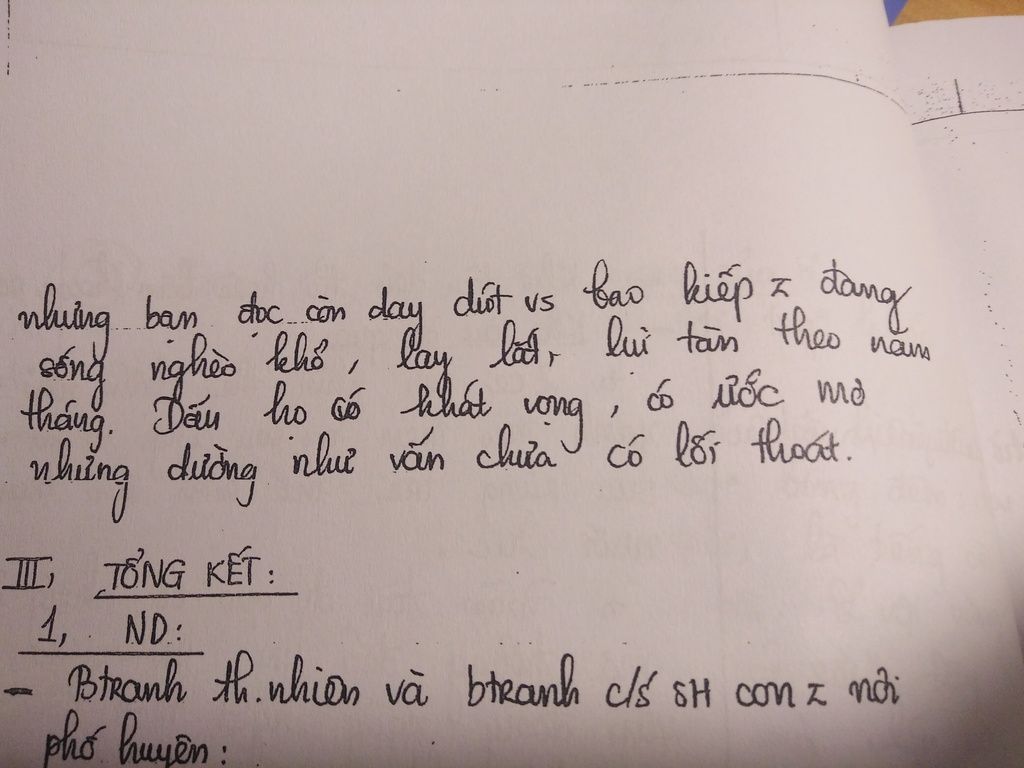 nhưng bạn đọc còn day dứt vs bao kiếp z đang
sống nghèo khổ, lay lắt, lụi tàn theo năm
tháng. Dẫu họ có khát vọng, có ước mơ
nhưng dường như vẫn chưa có lối thoát.
III, TỔNG KẾT:
1, ND:
- Btranh th.nhiên và btranh c/s SH con z nơi
phố huyện: